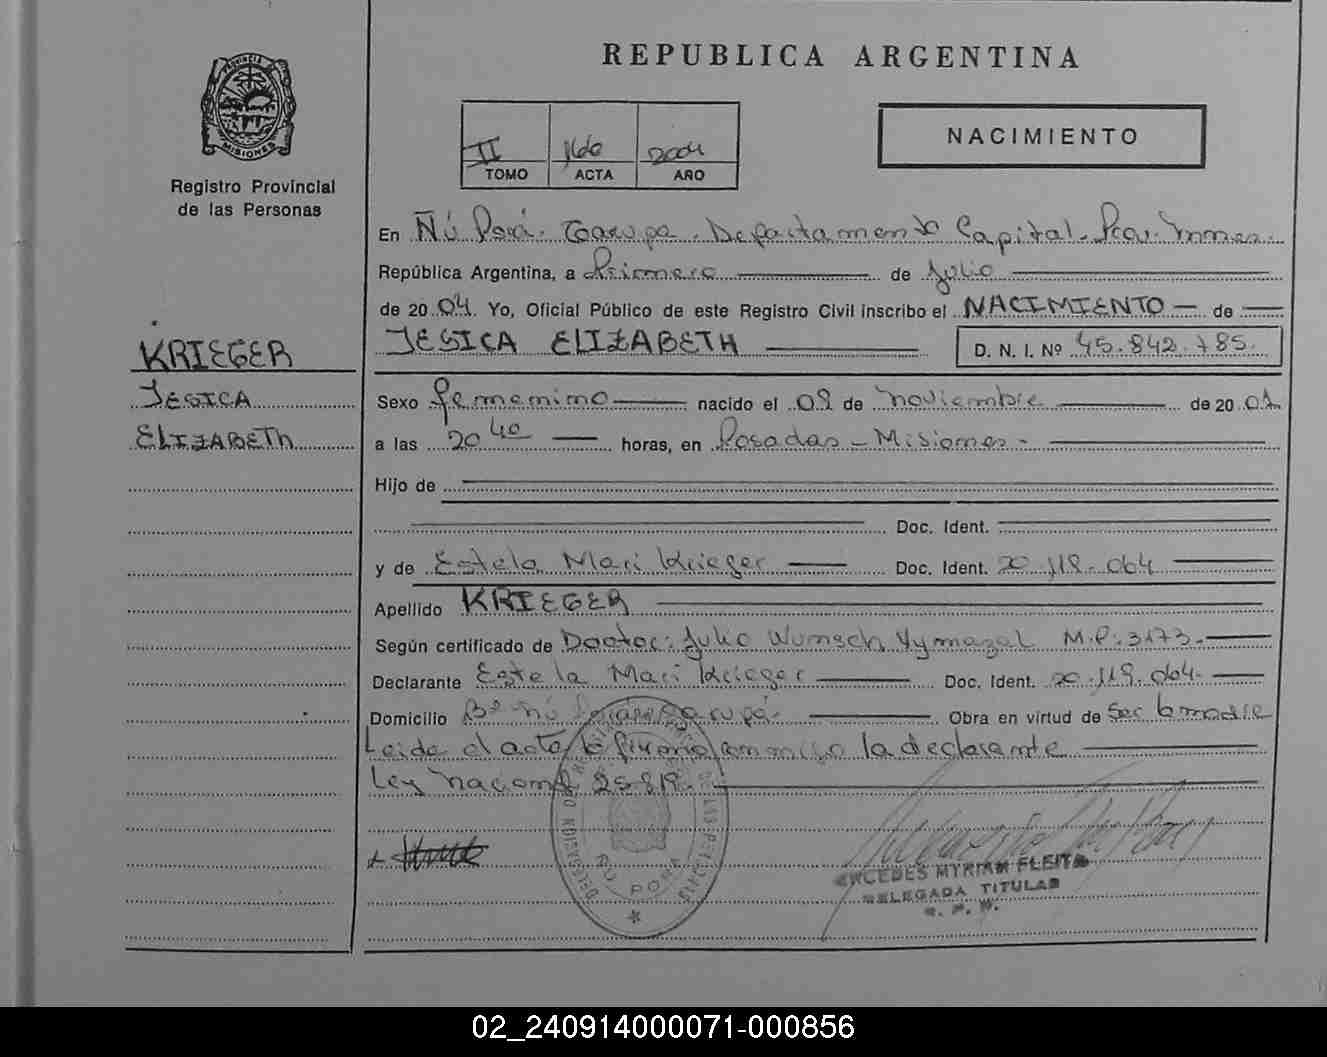 REPUBLICA ARGENTINA
PROVINCIA DE
MISIONES
Registro Provincial
de las Personas
II 160 2004
TOMO ACTA AÑO
NACIMIENTO
En Ñú Porá. Garupa. Departamento Capital. Pcia. Mnes.
República Argentina, a Primero de Julio
de 2004. Yo, Oficial Público de este Registro Civil inscribo el NACIMIENTO de
JESICA ELIZABETH D. N. I. Nº 45.842.785.
KRIEGER
JESICA
ELIZABETH
Sexo femenino nacido el 09 de noviembre de 2001
a las 20 40 horas, en Posadas - Misiones -
Hijo de
Doc. Ident.
y de Estela Mari Krieger Doc. Ident. 20.119.064
Apellido KRIEGER
Según certificado de Doctor: Julio Wunsch Vymazal M.P: 3173.
Declarante Estela Mari Krieger Doc. Ident. 20.119.064.
Domicilio Bº Ñú Porá Garupá. Obra en virtud de Ser la madre
Leida el acta la firma conmigo la declarante
Ley nacional 25819.
ÑU PORA
MERCEDES MYRIAM FLEITA
DELEGADA TITULAR
02_240914000071-000856